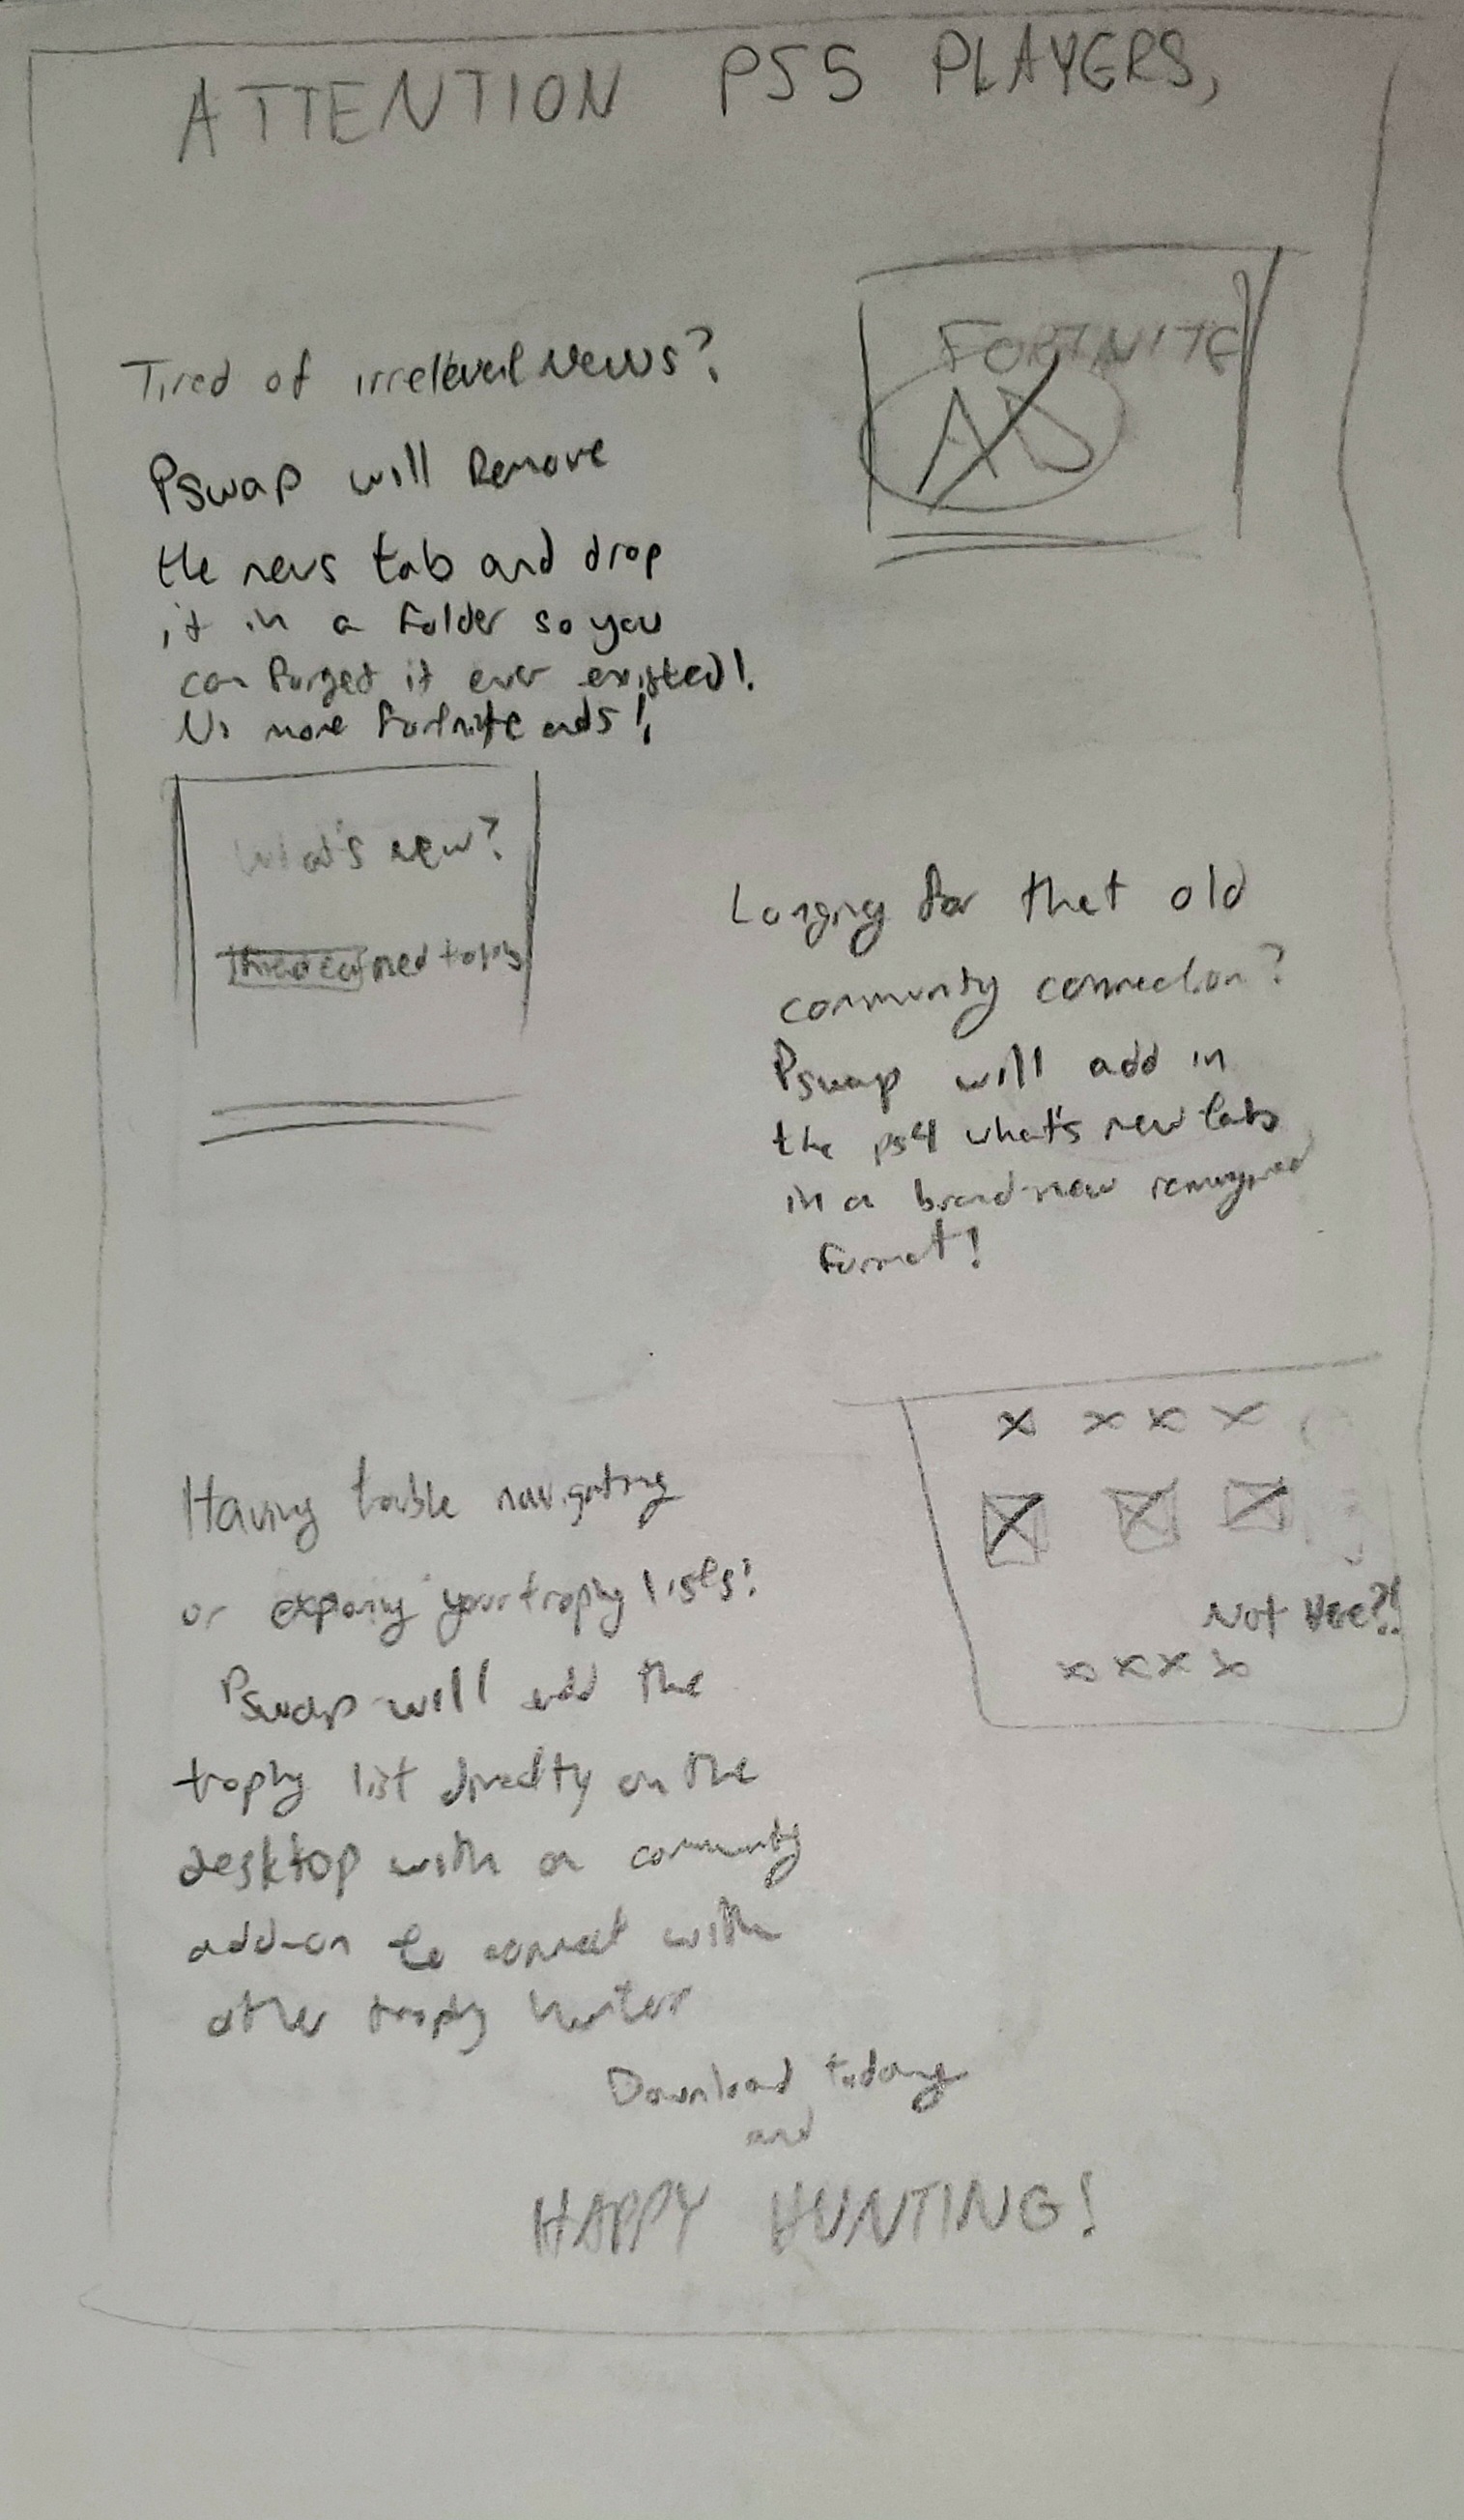 ATTENTION PS5 PLAYERS,
FORTNITE
AD
Tired of irrelevent News?
Pswap will Remove
the news tab and drop
it in a folder so you
can forget it ever existed!
No more Fortnite ads!
What's new?
Longing for that old
community connection?
Pswap will add in
the ps4 what's new tab
in a brand-new reimagined
format!
x x x x
Not Here?!
x x x x
Having trouble navigating
or your trophy lists?
Pswap will add the
trophy list directly on the
desktop with a community
add-on to connect with
other trophy hunters
Download today
and
HAPPY HUNTING!